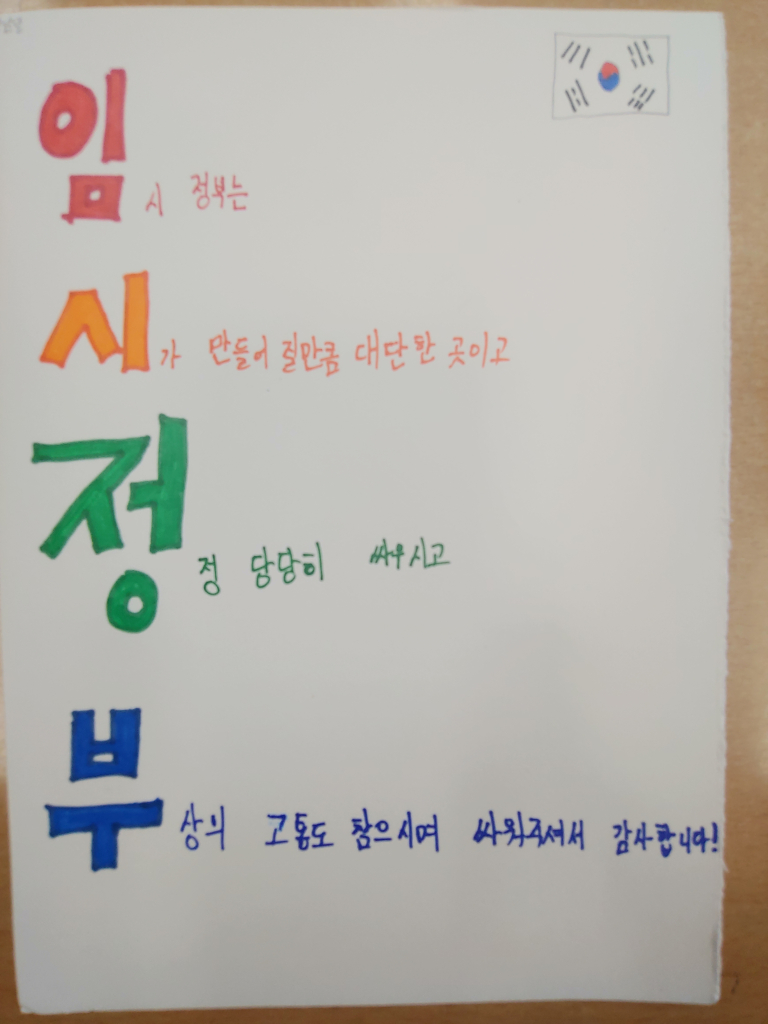 임시 정부는
시가 만들어 질만큼 대단한 곳이고
정정 당당히 싸우시고
부상의 고통도 참으시며 싸워주셔서 감사합니다!